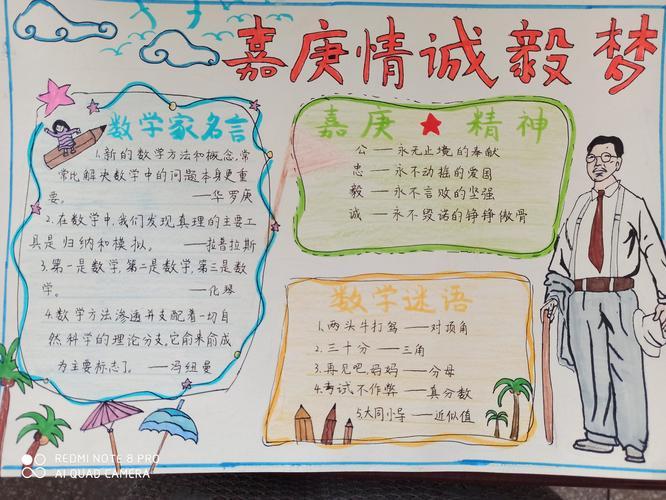 嘉庚情诚毅梦
数学家名言
1.新的数学方法和概念,常
常比解决数学中的问题本身更重
要。 ——华罗庚
2.在数学中,我们发现真理的主要工
具是归纳和模拟。 ——拉普拉斯
3.第一是数学,第二是数学,第三是数
学。 ——伦琴
4.数学方法渗透并支配着一切自
然科学的理论分支,它俞来俞成
为主要标志了。 ——冯纽曼
嘉庚★精神
公——永无止境的奉献
忠——永不动摇的爱国
毅——永不言败的坚强
诚——永不毁诺的铮铮傲骨
数学谜语
1.两头牛打驾——对顶角
2.三十分——三角
3.再见吧,妈妈——分母
4.考试不作弊——真分数
5.大同小异——近似值
REDMI NOTE 8 PRO
AI QUAD CAMERA